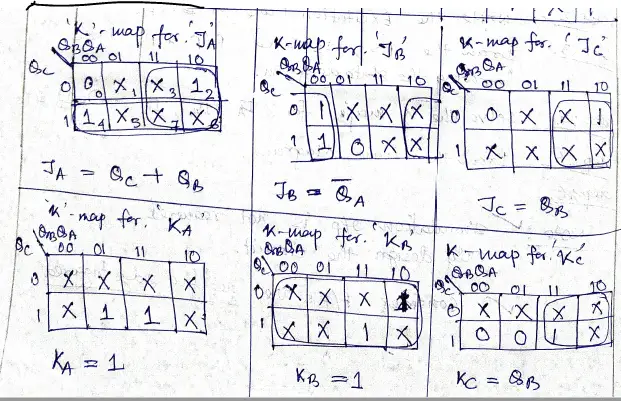 'K'-map for. 'JA'
QBQA
QC 00 01 11 10
0 0₀ X₁ X₃ 1₂
1 1₄ X₅ X₇ X₆
JA = QC + QB
K-map for. 'JB'
QBQA
QC 00 01 11 10
0 1 X X X
1 1 0 X X
JB = Q̅A
K-map for. 'JC'
QBQA
QC 00 01 11 10
0 0 X X 1
1 X X X X
JC = QB
'K'-map for. 'KA
QBQA
QC 00 01 11 10
0 X X X X
1 X 1 1 X
KA = 1
K-map for. 'KB'
QBQA
QC 00 01 11 10
0 X X X 1
1 X X 1 X
KB = 1
K-map for. 'KC'
QBQA
QC 00 01 11 10
0 X X X X
1 0 0 1 X
KC = QB